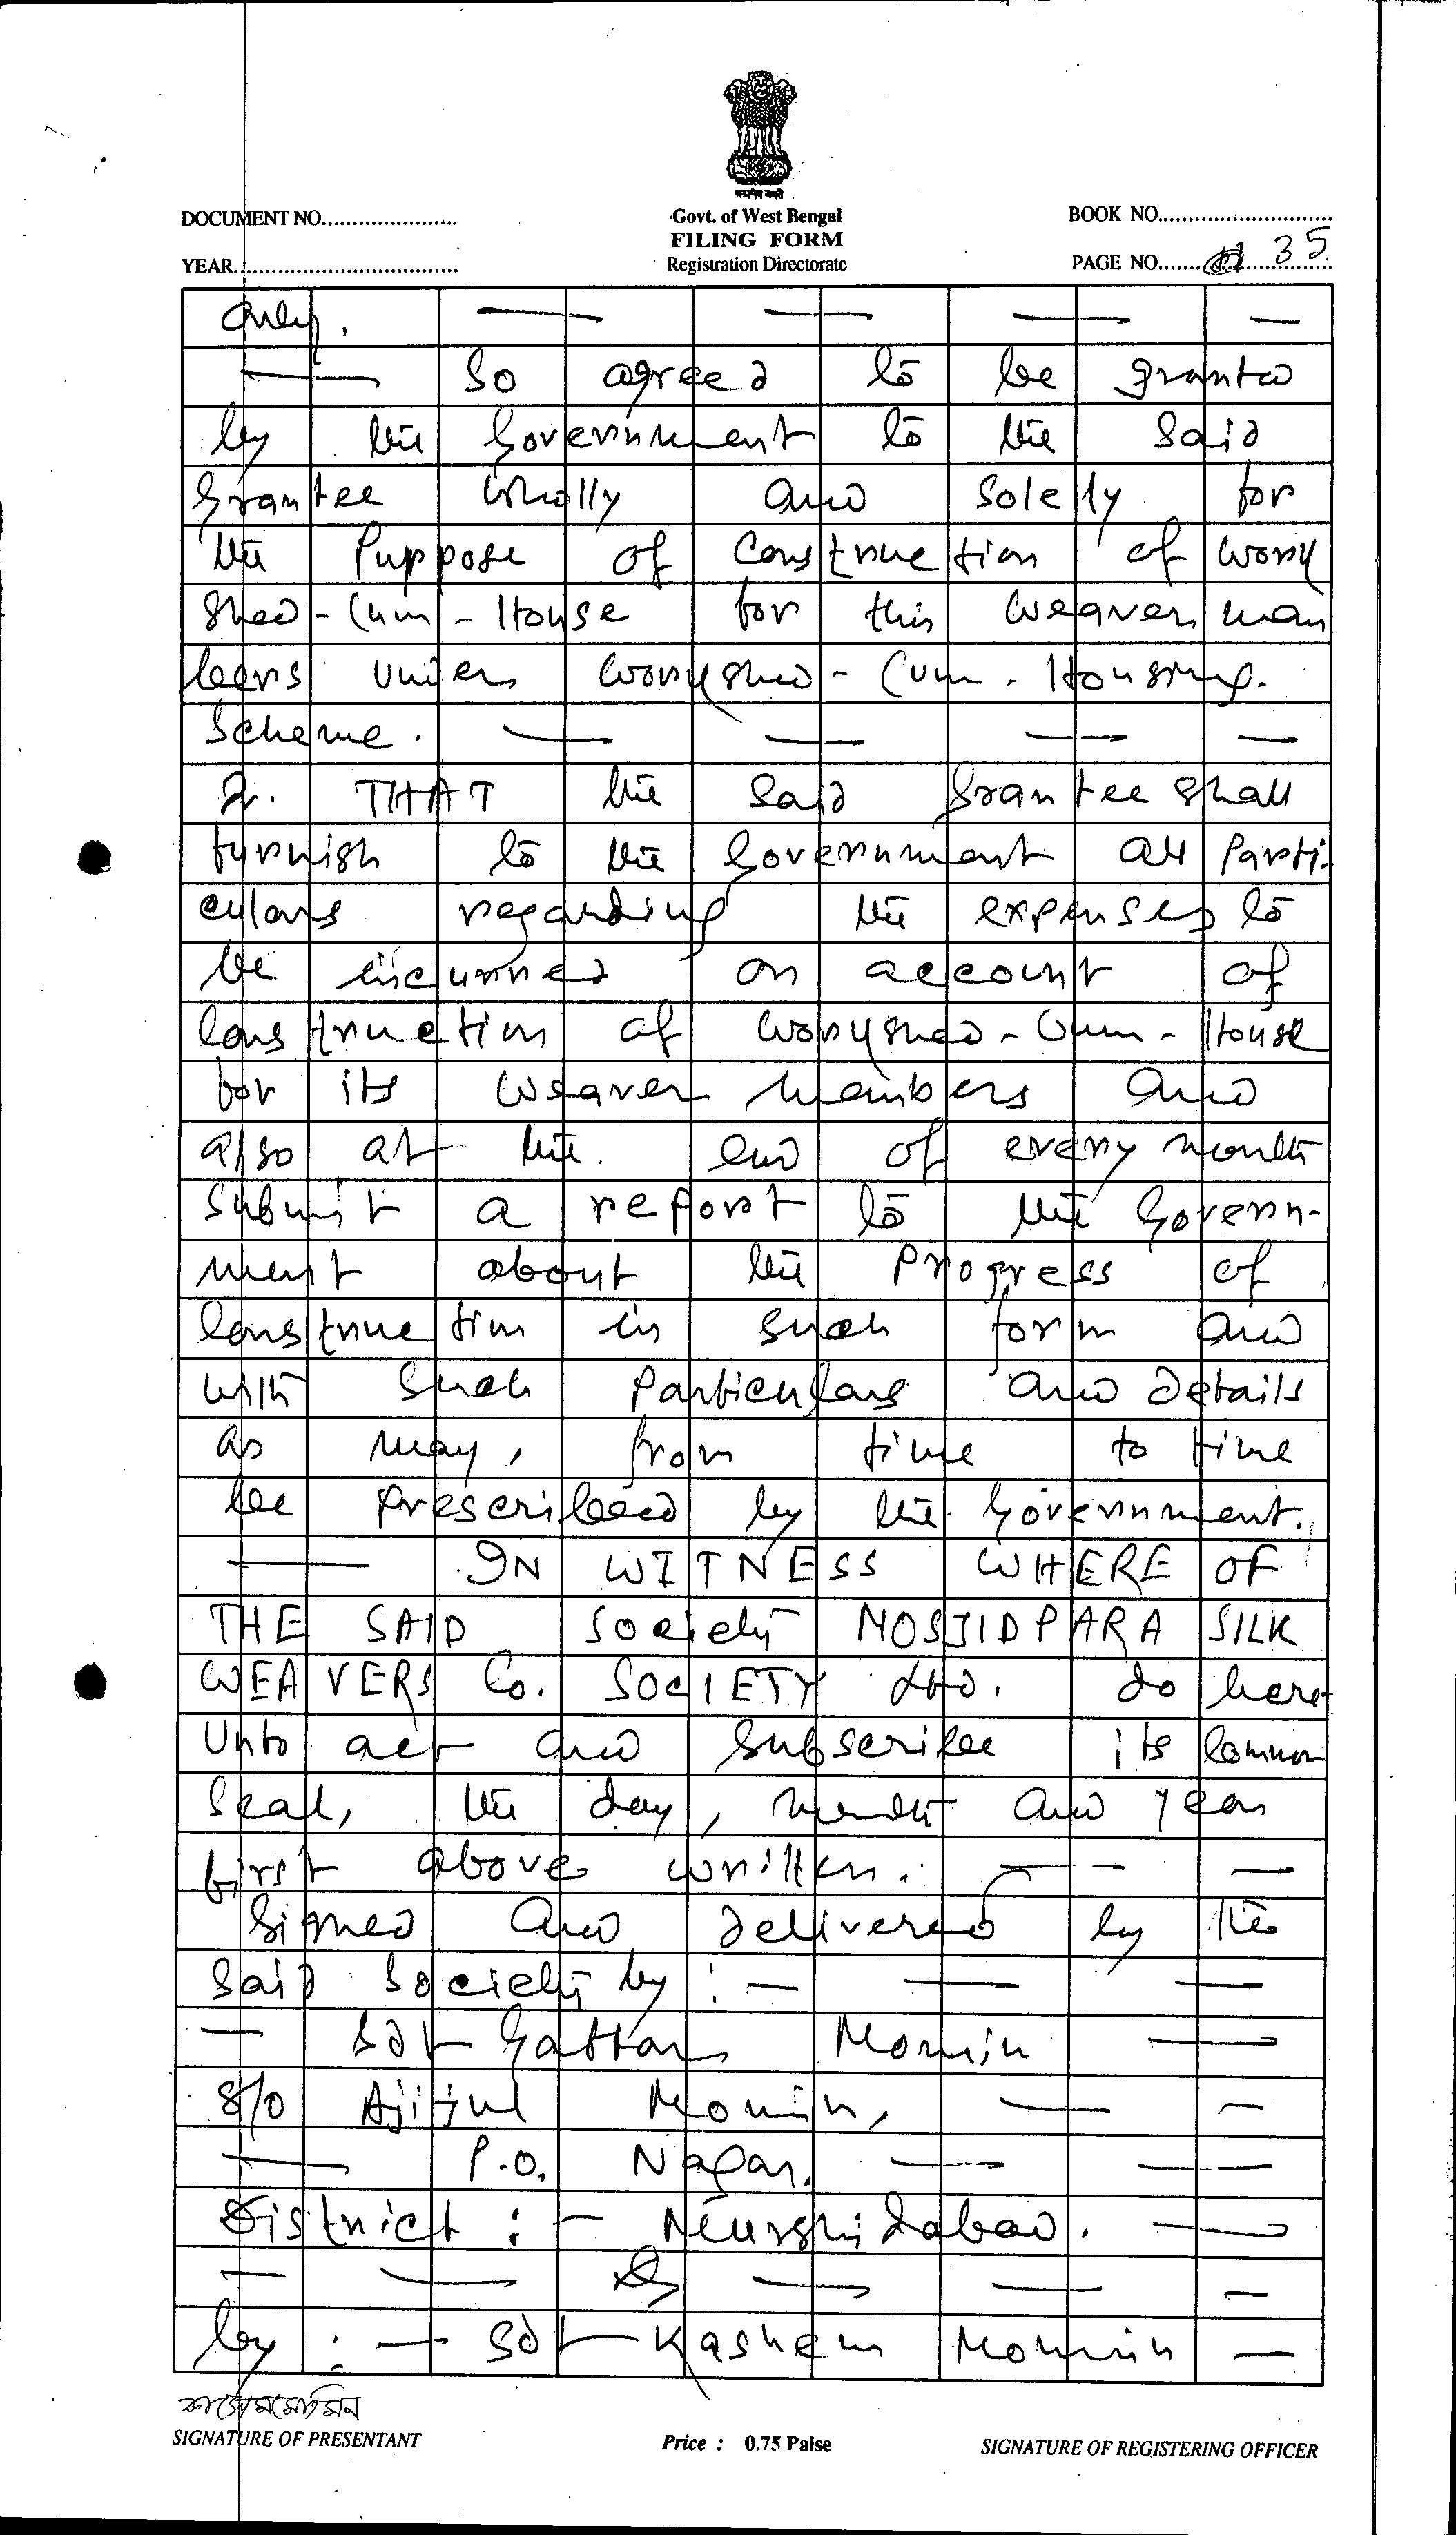 सत्यमेव जयते
Govt. of West Bengal
FILING FORM
Registration Directorate
DOCUMENT NO......................
YEAR....................................
BOOK NO............................
PAGE NO....... 35
only. — — — —
— So agreed to be granted
by the Government to the said
Grantee wholly and solely for
the Puppose of Construction of work
shed-Cum-House for this weaver mem
bers under workshed-Cum-Housing.
Scheme. — — — —
2. THAT the said Grantee shall
furnish to the Government all Parti-
culars regarding the expenses to
be incurred on account of
Construction of workshed-Cum-House
for its weaver members and
also at the end of every month
submit a report to the Govern-
ment about the Progress of
Construction in such form and
with such Particulars and details
as may, from time to time
be prescribed by the Government.
— IN WITNESS WHERE OF
THE SAID Society MOSJIDPARA SILK
WEAVERS Co. SOCIETY Ltd. do here-
Unto act and subscribe its Common
Seal, the day, month and year
first above written. — —
Signed and delivered by the
said Society by :— — —
— Sd/- Gaffar Momin —
S/o Ajijul Momin, — —
— P.O. Nagar. — —
District :— Murshidabad. —
— — & — — —
by :— Sd/- Kashem Momin —
কাশেম মোমিন
SIGNATURE OF PRESENTANT
Price : 0.75 Paise
SIGNATURE OF REGISTERING OFFICER